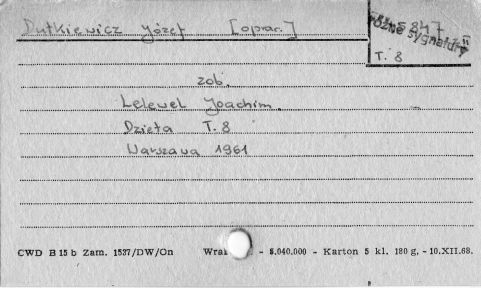 Dutkiewicz Józef [oprac.]
różne sygnatury
T. 8
zob.
Lelewel Joachim.
Dzieła T. 8
Warszawa 1961
CWD B 15 b Zam. 1537/DW/On - 8.040.000 - Karton 5 kl. 180 g. - 10.XII.68.